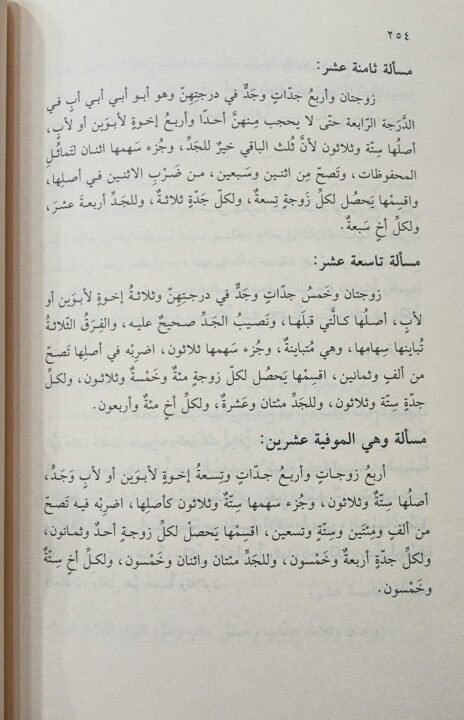 ٢٥٤
مسألة ثامنة عشر:
زوجتان وأربعُ جدّاتٍ وجَدٌّ في درجتِهنّ وهو أبو أبي أبي أبٍ في
الدَّرَجة الرّابعة حتّى لا يحجب مِنهنَّ أحدًا وأربعُ إخوةٍ لأبوَين أو لأبٍ،
أصلُها سِتّة وثلاثون لأنّ ثُلث الباقي خيرٌ للجَدِّ، وجُزء سَهمها اثنان لتَماثُلِ
المحفوظات، وتَصحّ مِن اثنين وسَبعين، مـن ضَربِ الاثنـين فـي أصلِها،
واقسِمْها يَحصُل لكلِّ زوجةٍ تِسعةٌ، ولكلّ جَدّةٍ ثلاثةٌ، وللجَدِّ أربعةَ عشرَ،
ولكلِّ أخٍ سَبعةٌ.
مسألة تاسعة عشر:
زوجتان وخَمسُ جدّاتٍ وجَدٌّ في درجتِهنّ وثلاثةُ إخوةٍ لأبوَين أو
لأبٍ، أصلُها كـالَّتي قبلَـها، ونَصيبُ الجَدِّ صحيحٌ عليه، والفِرَقُ الثّلاثةُ
تُباينها سِهامها، وهي مُتباينةٌ، وجُزء سَهمها ثلاثون، اضرِبْه في أصلِها تَصحّ
من ألفٍ وثمانين، اقسِمْها يَحصُل لكلّ زوجةٍ مئةٌ وخَمْسةٌ وثلاثـون، ولكـلِّ
جدّةٍ سِتّة وثلاثون، وللجَدِّ مئتان وعَشرةٌ، ولكلِّ أخٍ مئةٌ وأربعون.
مسألة وهي الموفية عشرين:
أربعُ زوجـاتٍ وأربـعُ جـدّاتٍ وتِسعةُ إخـوةٍ لأبوَين أو لأبٍ وَجَدٌّ،
أصلُها سِتّةٌ وثلاثون، وجُزء سهمها سِتّةٌ وثلاثون كأصلِها، اضرِبْه فيه تَصحّ
من ألفٍ ومِئتَين وسِتّةٍ وتسعين، اقسِمْها يَحصلْ لكلِّ زوجةٍ أحدٌ وثمانون،
ولكلِّ جدّةٍ أربعةٌ وخَمْسون، وللجَدِّ مئتان واثنان وخَمْسون، ولكلِّ أخٍ سِتّةٌ
وخَمْسون.